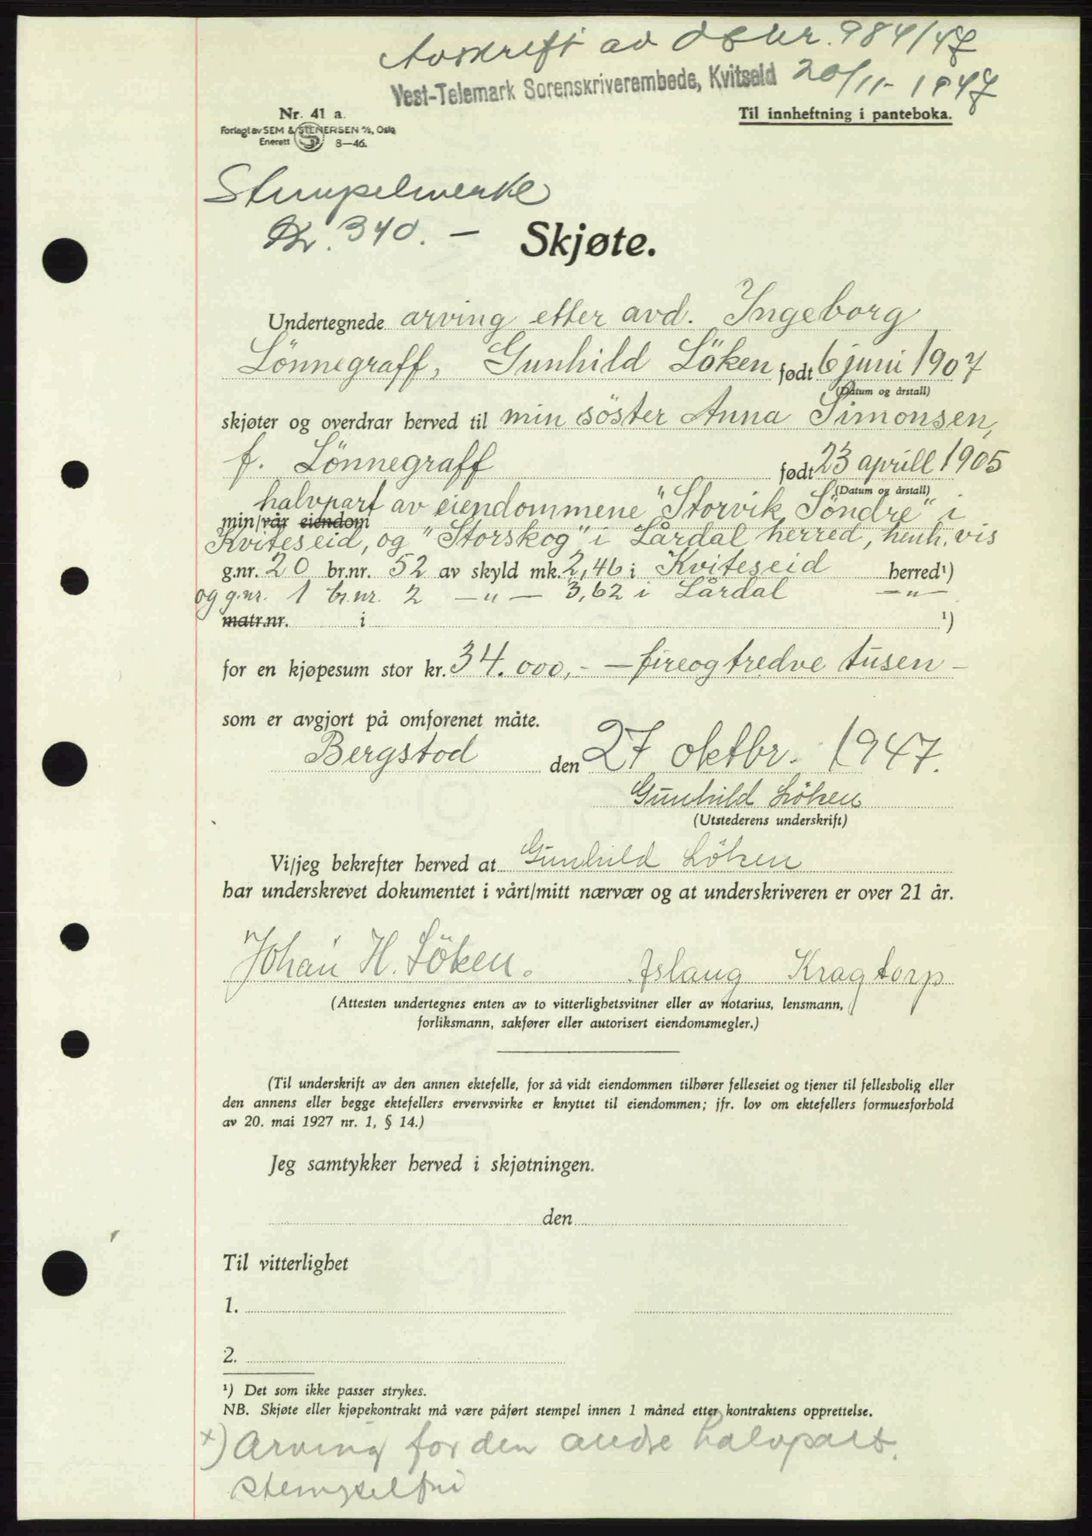 Avskrift av dbnr. 984/47
Vest-Telemark Sorenskriverembede, Kvitseid 20/11-1947
Nr. 41 a.
Til innheftning i panteboka.
Forlagt av SEM & STENERSEN A/S, Oslo
Enerett 8-46.
Stempelmerke
Kr. 340.-
Skjøte.
Undertegnede arving etter avd. Ingeborg
Lønnegraff, Gunhild Löken født 6 juni 1907
(Datum og årstall)
skjøter og overdrar herved til min söster Anna Simonsen,
f. Lønnegraff født 23 aprill 1905
(Datum og årstall)
halvpart av eiendommene "Storvik Söndre" i
min/vår eiendom
Kviteseid, og "Storskog" i Lårdal herred, henh.vis
g.nr. 20 br.nr. 52 av skyld mk. 2,46 i Kviteseid herred¹)
og g.nr. 1 br.nr. 2 —"— 3,62 i Lårdal —"—
matr.nr. i ¹)
for en kjøpesum stor kr. 34.000,- — fireogtredve tusen —
som er avgjort på omforenet måte.
Bergstod den 27 oktbr. 1947.
Gunhild Löken
(Utstederens underskrift)
Vi/jeg bekrefter herved at Gunhild Löken
har underskrevet dokumentet i vårt/mitt nærvær og at underskriveren er over 21 år.
Johan H. Löken. Aslaug Kragtorp
(Attesten undertegnes enten av to vitterlighetsvitner eller av notarius, lensmann,
forliksmann, sakfører eller autorisert eiendomsmegler.)
(Til underskrift av den annen ektefelle, for så vidt eiendommen tilhører felleseiet og tjener til fellesbolig eller
den annens eller begge ektefellers ervervsvirke er knyttet til eiendommen; jfr. lov om ektefellers formuesforhold
av 20. mai 1927 nr. 1, § 14.)
Jeg samtykker herved i skjøtningen.
den
Til vitterlighet
1.
2.
¹) Det som ikke passer strykes.
NB. Skjøte eller kjøpekontrakt må være påført stempel innen 1 måned etter kontraktens opprettelse.
x) Arving for den andre halvpart.
stempelfri